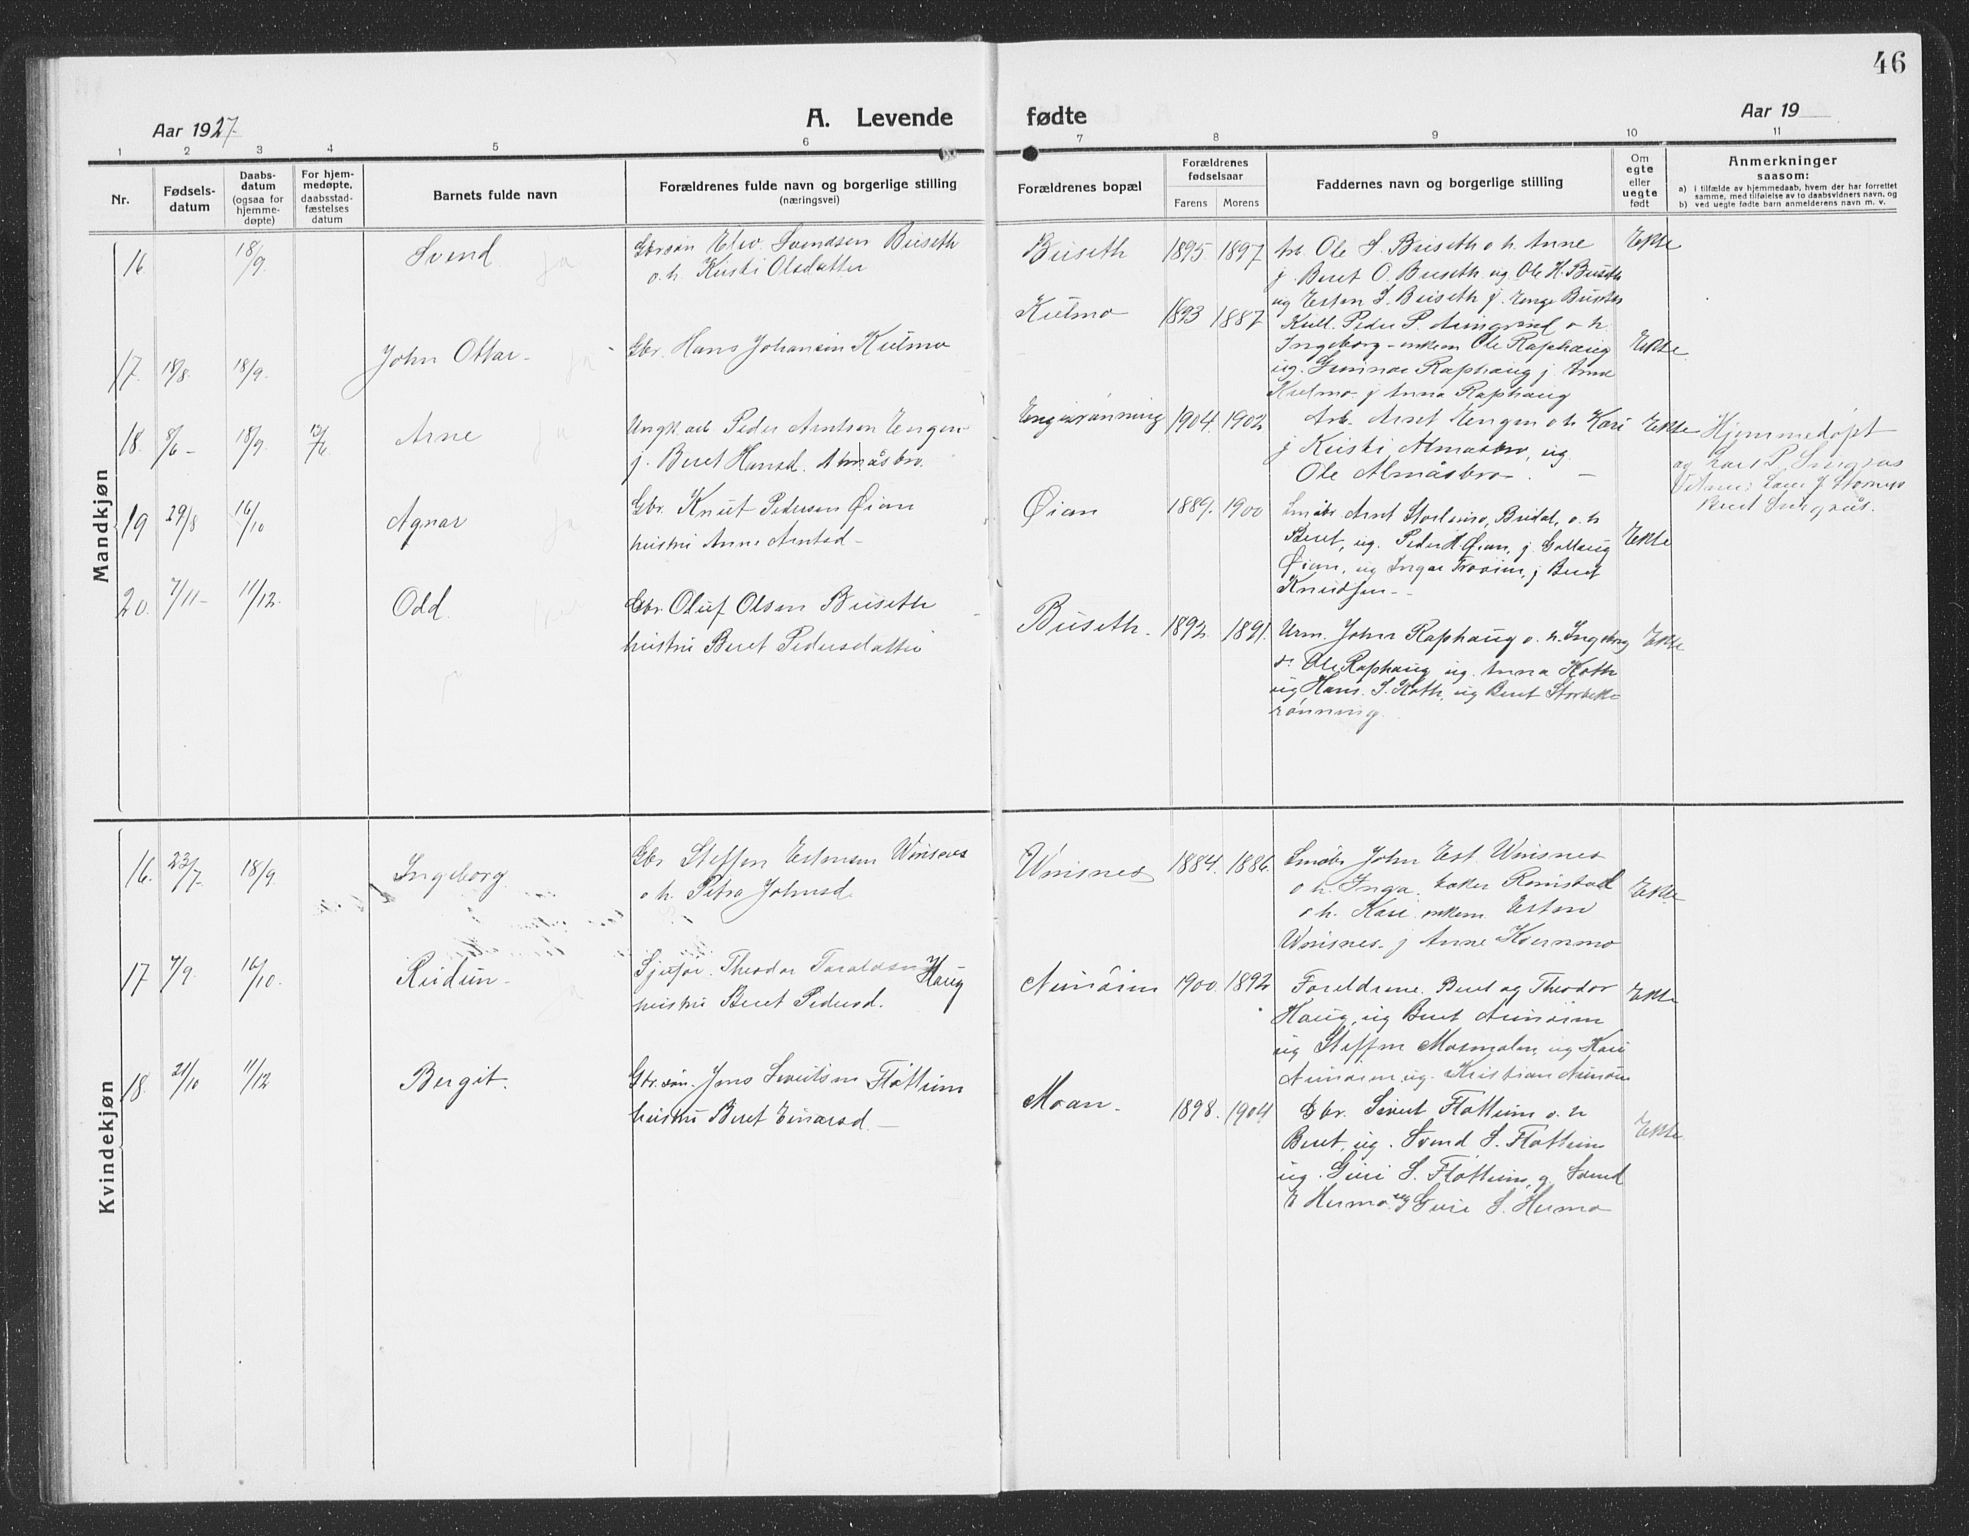 46
Aar 1927.
A. Levende fødte
Aar 19
1 2 3 4 5 6 7 8 9 10 11
Nr.
Fødsels-
datum
Daabs-
datum
(ogsaa for
hjemme-
døpte)
For hjem-
medøpte,
daabsstad-
fæstelses
datum
Barnets fulde navn
Forældrenes fulde navn og borgerlige stilling
(næringsvei)
Forældrenes bopæl
Forældrenes
fødselsaar
Farens Morens
Faddernes navn og borgerlige stilling
Om
egte
eller
uegte
født
Anmerkninger
saasom:
a) i tilfælde av hjemmedaab, hvem der har forrettet
samme, med tilføielse av to daabsvidners navn, og
b) ved uegte fødte barn anmelderens navn m. v.
Mandkjøn
16 18/9 Svend ja
Gbrsøn Elev Svendsen Buseth
o. h. Kirsti Olsdatter
Buseth 1895. 1897
Arb. Ole S. Buseth o h. Anne
j. Beret O. Buseth ug Ole H. Buseth
ug Esten S. Buseth j. Inge Buseth
Ekte
17. 18/8. 18/9. John Ottar - ja
Gbr. Hans Johansen Kulmo
Kulmo 1893 1887
Peder P. Aungrind o h.
Ingeborg - enkem Ole Raphaug
ug. Gunnar Raphaug j.
Kulmo j Anna Raphaug
Ekte
18. 8/6 - 18/9. 12/6 Arne ja
Ungk arb Peder Arntsen Engen
j. Beret Hansd. Almåsbro.
Engesrønning 1904. 1902
Arb. Arnt Engen o h Kari
j Kirsti Almåsbro, ug.
Ole Almåsbro. -
Ekte
Hjemmedøpt
av Lars P. Singsas
19 29/8 16/10 Agnar ja
Gbr. Knut Pedersen Øian
hustru Anne Arntsd -
Øian 1889. 1900
Småbr Arnt Storlimo, Budal, o. h
Beret, ug. Peder H Øian, j.
Øian, ug Inger j Beret
Knudsen -
Ekte
20. 7/11 - 11/12. Odd.
Gbr. Oluf Olsen Buseth
hustru Beret Pedersdatter
Buseth. 1892. 1891.
John Raphaug o. h. Ingeborg
Ole Raphaug ug. Anna Koth
ug Hans. S. Koth, ug Beret Storbekk
rønning.
Ekte
Kvindekjøn
16. 23/7. 18/9. Ingeborg
Gbr Steffen Estensen Winsnes
o h. Petra Johnsd.
Winsnes 1884. 1886.
Småbr John Est. Winsnes
o h. Inga. Romstad
o h. Kari. enkem Esten
Winsnes. j Anne Kvernmo
Ekte
17 7/9. 16/10. Reidun. ja
Sjafør. Theodor Taraldsen Haug
hustru Beret Pedersd.
Aunøien 1900. 1892
Foreldrene Beret og Theodor
Haug, ug Beret Aunøien
ug Steffen Mosmælen, ug Kari
Aunøien, ug. Kristian Aunøien
Ekte
18. 21/10 11/12 Bergit.
Gbr. søn. Jens Sivertsen Fløttum
hustru Beret Einarsd. -
Moan. 1898. 1904
Gbr. Sivert Fløttum o. h
Beret, ug. Svend S. Fløttum
ug. Guri S. Fløttum, g. Svend
E Hermo ug Guri S. Hermo
Ekte